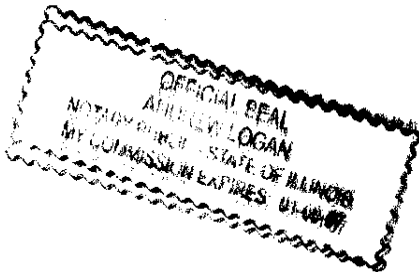 OFFICIAL SEAL
ANDREW LOGAN
NOTARY PUBLIC - STATE OF ILLINOIS
MY COMMISSION EXPIRES: